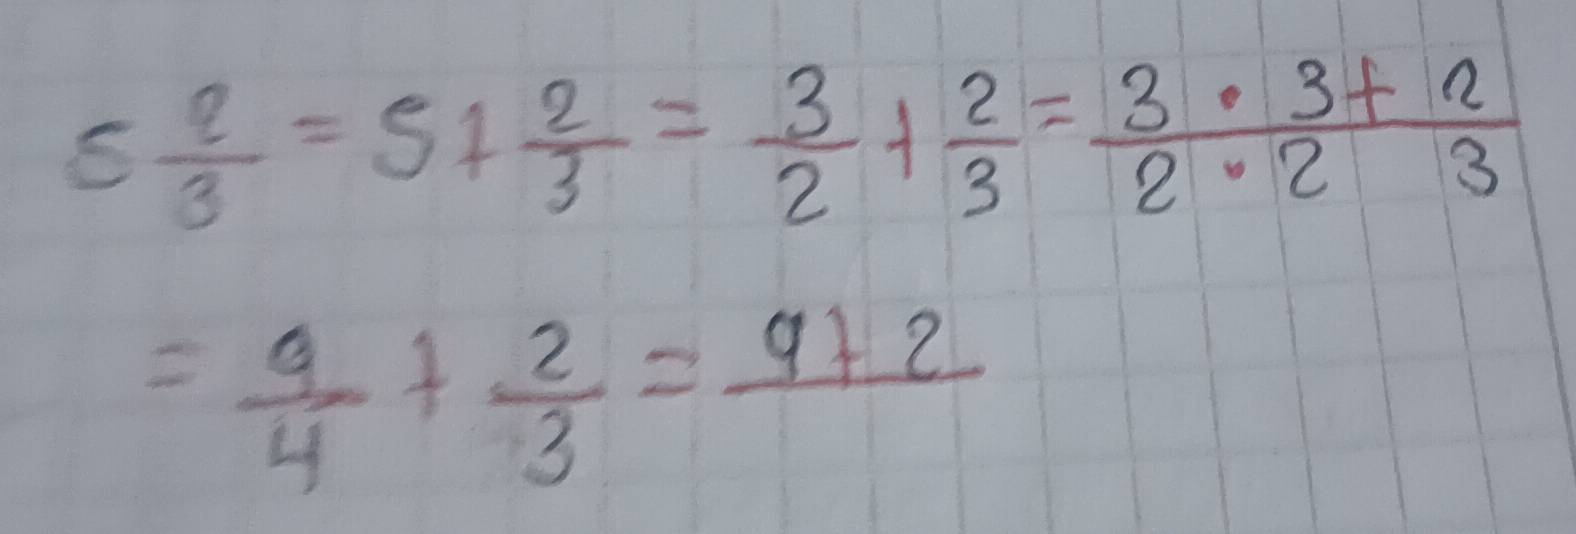 5 2/3 = 5 + 2/3 = 3/2 + 2/3 = 3 · 3 + 2 / 2 · 2 3
= 9/4 + 2/3 = 9 + 2